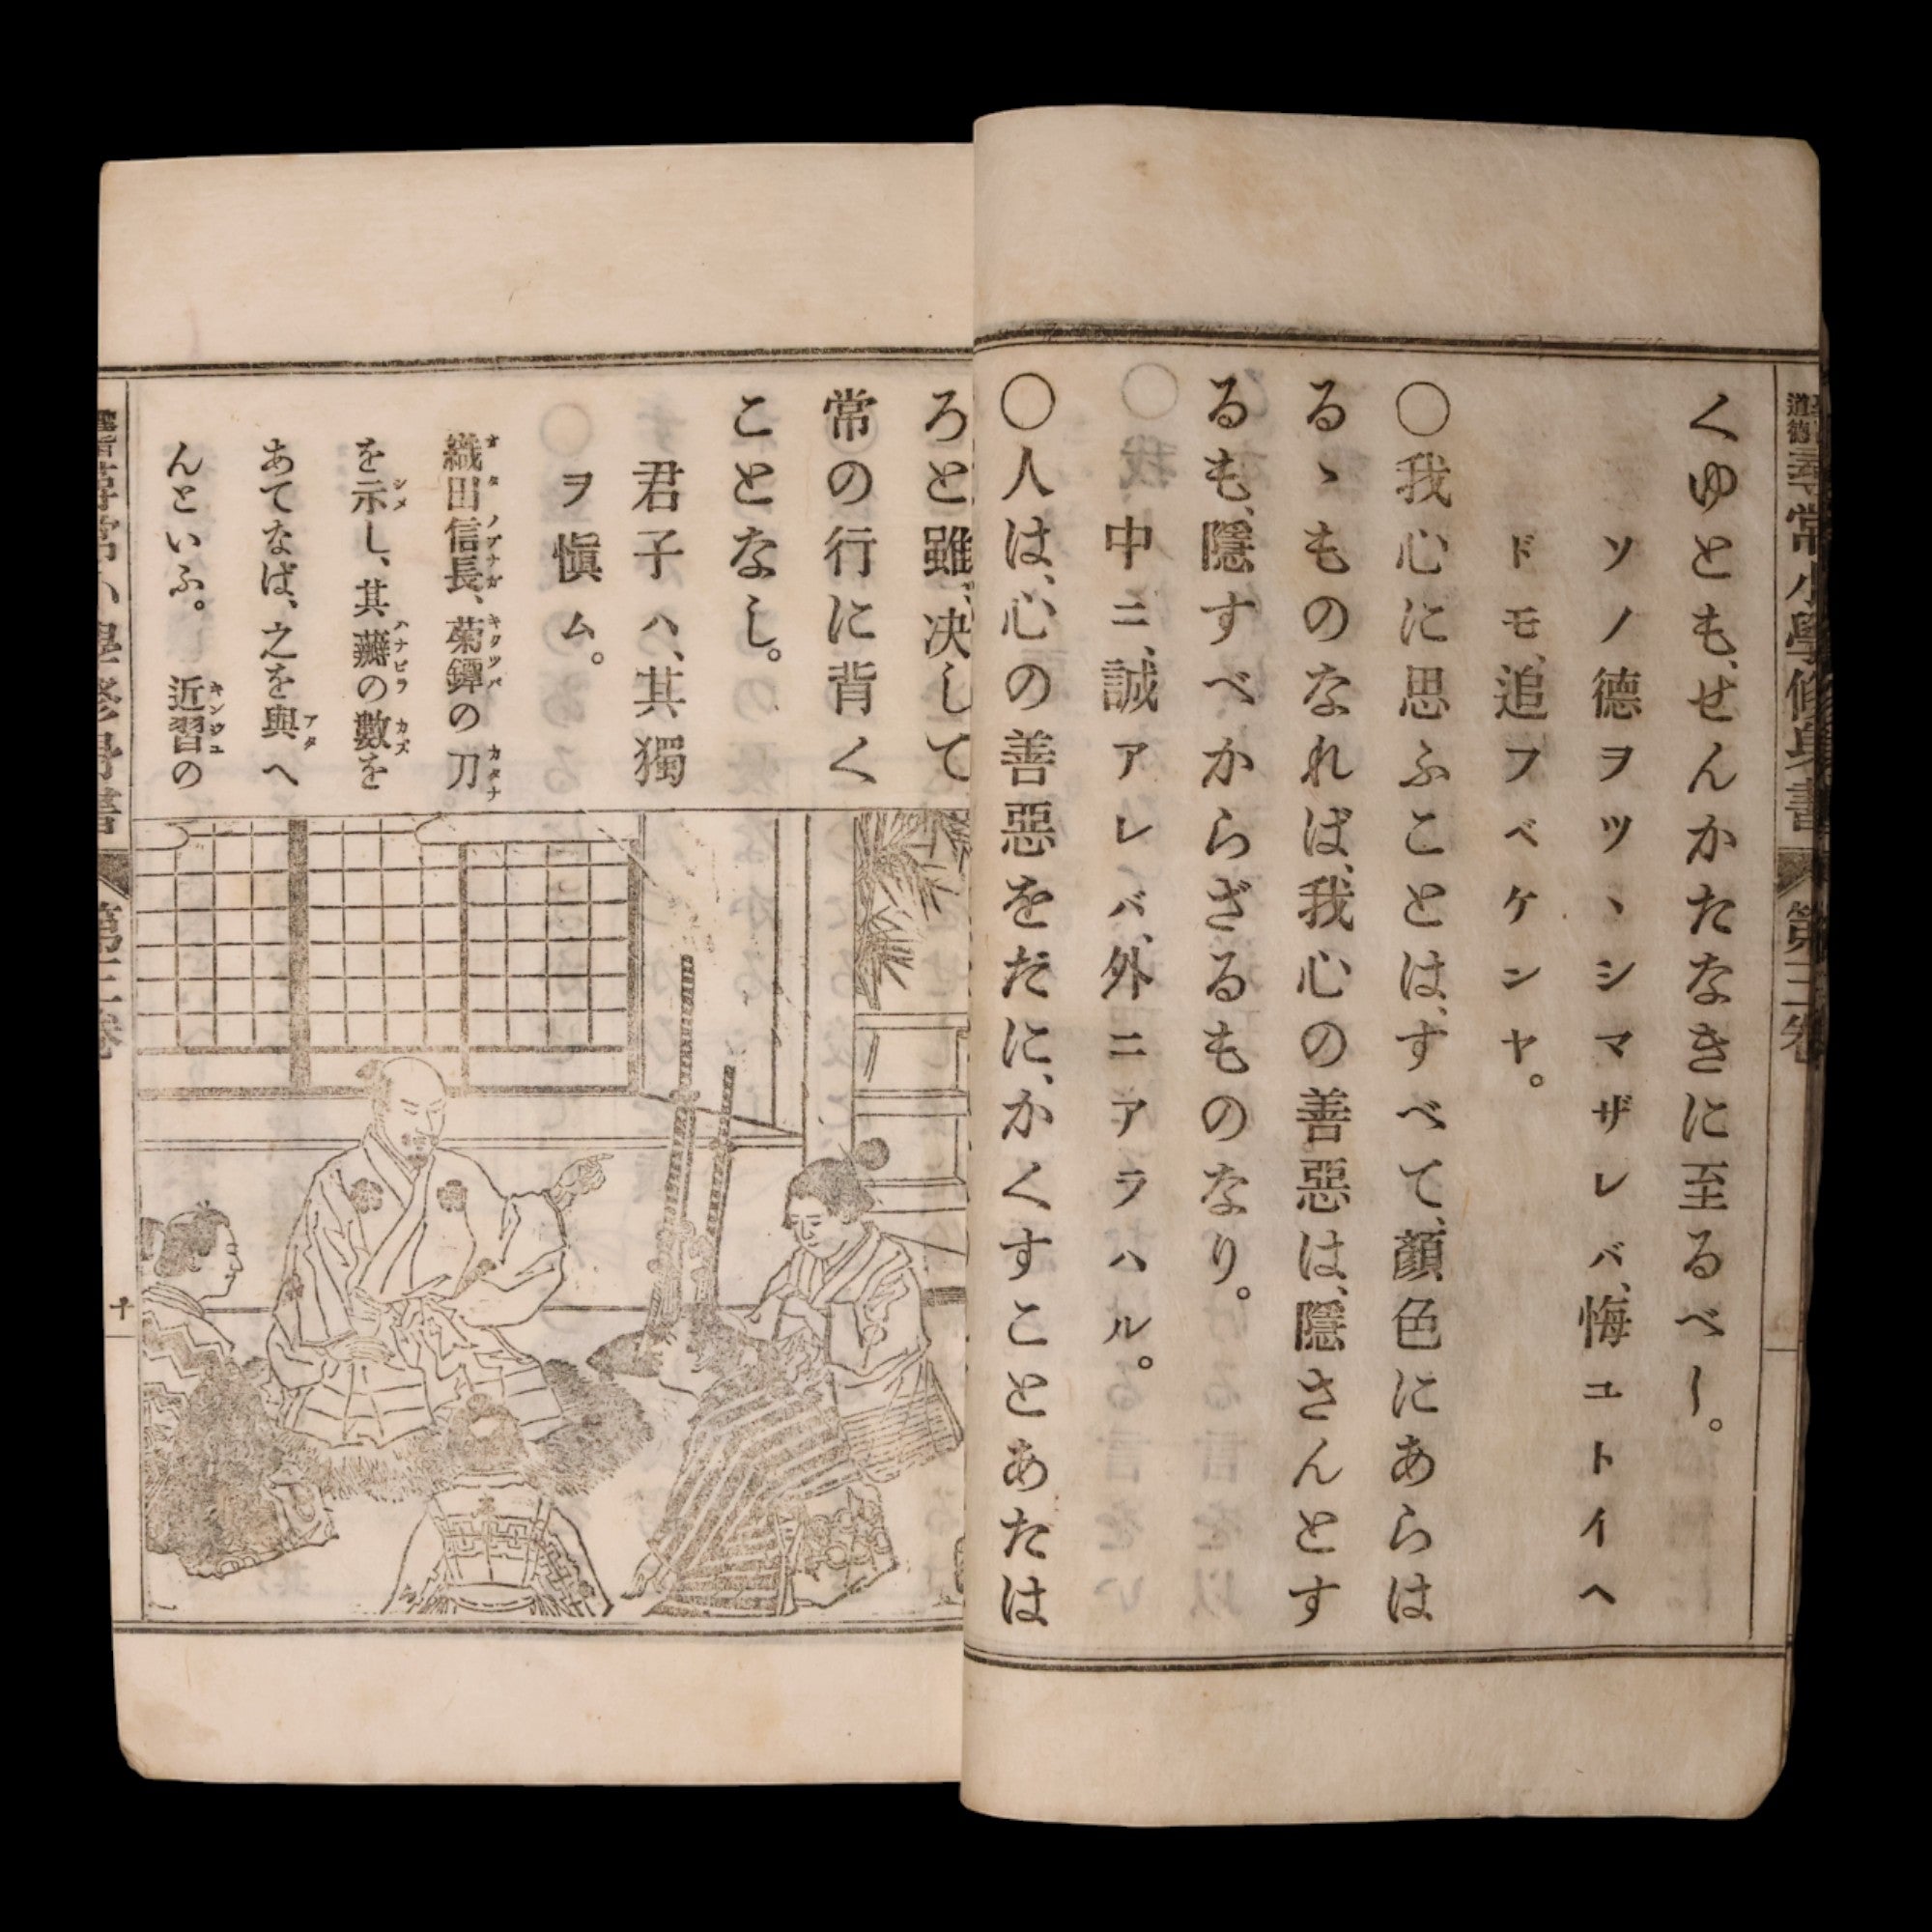 くゆとも、せんかたなきに至るべし。
ソノ德ヲツヽシマザレバ、悔ユトイヘ
ドモ、追フベケンヤ。
○我心に思ふことは、すべて、顏色にあらは
るヽものなれば、我心の善惡は、隱さんとす
るも、隱すべからざるものなり。
中ニ、誠アレバ、外ニアラハル。
○人は、心の善惡をだに、かくすことあたは
ろと雖、决して
常の行に背く
ことなし。
君子ハ、其獨
ヲ愼ム。
織田信長、菊鐔の刀
を示し、其瓣の數を
あてなば、之を與へ
んといふ。近習の
尋常小學修身書
第三卷
十